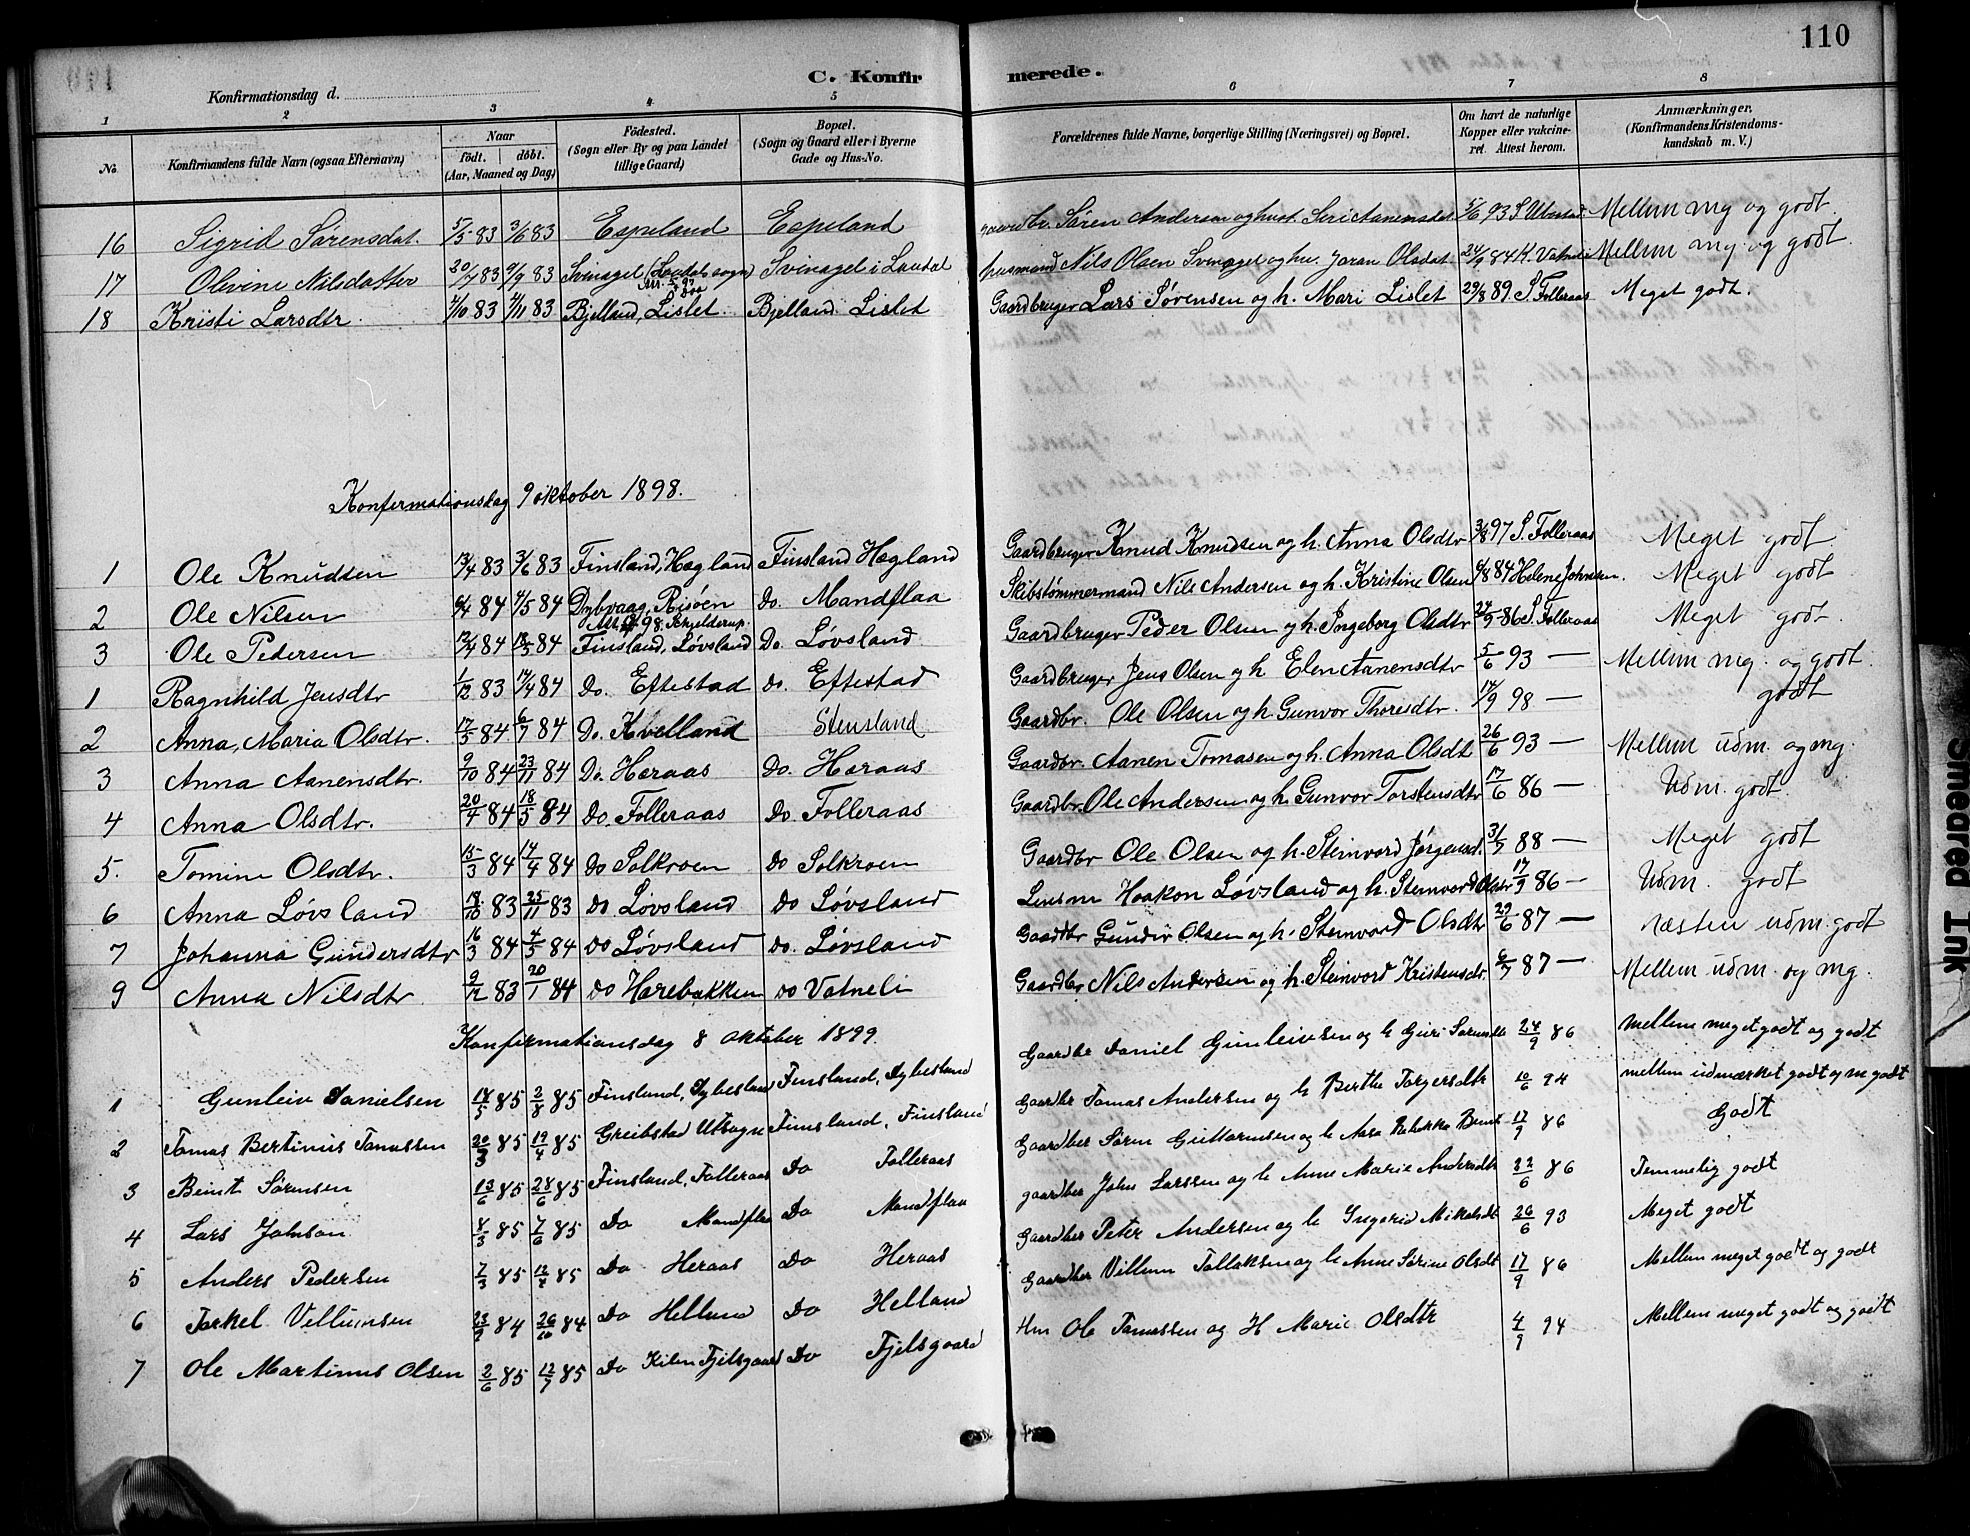 110
C. Konfirmerede.
Konfirmationsdag d.
1 2 3 4 5 6 7 8
No. Konfirmandens fulde Navn (ogsaa Efternavn) Naar født. døbt. (Aar, Maaned og Dag) Födested. (Sogn eller By og paa Landet tillige Gaard) Bopæl. (Sogn og Gaard eller i Byerne Gade og Hus-No. Forældrenes fulde Navne, borgerlige Stilling (Næringsvei) og Bopæl. Om havt de naturlige Kopper eller vakcineret. Attest herom. Anmærkninger. (Konfirmandens Kristendomskundskab m. V.)
16 Sigrid Sørensdat. 5/5 83 3/6 83 Espeland Espeland Søren Andersen og hust. Siri Aanensdat 5/6 93 Mellem mg og godt.
17 Olivine Nilsdatter 20/7 83 9/9 83 Svinagel (Laudals sogn) Svinagel i Laudal husmand Nils Olsen Svinagel og hu. Joran Olsdat 24/9 84 K. Vatneli Mellem mg. og godt.
18 Kristi Larsdtr. 1/10 83 4/11 83 Bjelland, Lislet. Bjelland Lislet Gaardbruger Lars Sørensen og h. Mari Lislet 29/8 89. S. Folleraas Meget godt.
Konfermationsdag 9 oktober 1898.
1 Ole Knudsen 13/4 83 3/6 83 Finsland, Hægland Finsland Hægland Gaardbruger Knud Knudsen og h. Anna Olsdtr 3/8 97 S. Folleraas Meget godt.
2 Ole Nilsen 6/4 84 4/5 84 Dybvaag, Risöen Do. Mandflaa Skibstømmermand Nils Andersen og h. Kristine Olsen 6/8 84 Helene Johnsen. Meget godt
3 Ole Pedersen 12/4 84 18/5 84 Finsland, Løvsland Do. Løvsland Gaardbruger Peder Olsen og h. Ingeborg Olsdtr 24/9 86 S. Folleraas Meget godt.
1 Ragnhild Jensdtr 1/12 83 14/4 84 Do. Eftestad Do. Eftestad Gaardbruger Jens Olsen og h Elen Aanensdtr 5/6 93 — Mellem mg. og godt.
2 Anna, Maria Olsdtr. 17/5 84 6/7 84 Do. Kvelland Stensland Gaardbr. Ole Olsen og h. Gunvor Thoresdtr. 14/9 98 — godt
3 Anna Aanensdtr. 9/10 84 23/11 84 Do. Heraas Do. Heraas Gaardbr. Aanen Tomasen og h. Anna Olsdt 26/6 93 — Mellem udm. og mg.
4 Anna Olsdtr. 20/4 84 18/5 84 Do. Folleraas Do. Folleraas Gaardbr. Ole Andersen og h. Gunvor Torstensdtr 17/6 86 — Udm. godt.
5. Tomine Olsdtr. 15/3 84 14/4 84 Do Solkroen Do Solkroen Gaardbr Ole Olsen og h. Steinvord Jørgensd. 31/7 88 — Meget godt
6 Anna Løvsland 83 25/11 83 Do Løvsland Do Løvsland Lensm Haakon Løvsland og h. Steinvord Olsdtr 17/9 86 — Udm. godt
7 Johanna Gundersdtr 16/3 84 4/5 84 Do Løvsland Do. Løvsland Gaardbr Gunder Olsen og h. Steinvord Olsdtr 29/6 87 — næsten udm. godt
9 Anna Nilsdtr 9/12 83 20/1 84 Do Harebakken Do Vatneli Gaardbr Nils Andersen og h. Steinvord Kristensdr. 6/7 87 — Mellem udm. og mg.
Konfirmationsdag 8 Oktober 1899.
1 Gunleiv Danielsen 85 2/8 85 Finsland, Dybesland Finsland, Dybesland Gaardbr Daniel Gunleivsen og h Guri 24/9 86 mellem meget godt og godt
2 Tomas Bertinius Tomassen 20/3 85 19/4 85 Greibstad Utsogn Finsland, Finsland Gaardbr Tomas Andersen og h Berthe Torgersdtr 10/6 94 mellem udmærket godt og m godt
3 Beint Sørensen 13/6 85 28/6 85 Finsland, Folleraas Do Folleraas Gaardber Søren Guttormsen og h Aasa Rebekka 17/9 86 Godt
4 Lars Johnson 85 7/6 85 Do Mandflaa Do Mandflaa gaardber John Larssen og h Anne Marie Andersdtr 22/6 86 Temmelig godt
5 Anders Pedersen 7/3 85 85 Do Heraas Do Heraas Gaardber Peter Andersen og h Ingerid Mikalsdt 26/6 93 Meget godt
6 Torkel Villumsen 23/9 84 26/10 84 Do Helland Do Helland Gaardber Villum Tallaksen og h Anne Sørine Olsdt 17/9 86 Mellem meget godt og godt
7 Ole Martinus Olsen 2/6 85 12/7 85 Do Kilen Fjelsgaard Do Fjelsgaard Hm Ole Tomassen og H Marie Olsdtr 4/9 94 Mellem meget godt og godt
Smeared Ink